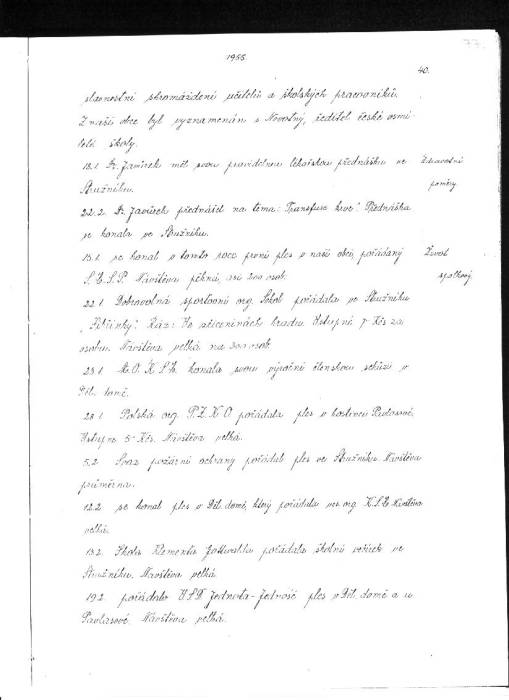 77.
1955
40.
slavnostní shromáždění učitelů a školských pracovníků.
Z naší obce byl vyznamenán s. Novotný, ředitel české osmi
leté školy.
18.1. Dr. Javůrek měl svou pravidelnou lékařskou přednášku ve
Stružníku.
Zdravotní
poměry
22.2. Dr. Javůrek přednášel na tema: "Transfuse krve". Přednáška
se konala ve Stružníku.
15.1. se konal v tomto roce první ples v naší obci, pořádaný
Návštěva pěkná, asi 200 osob.
Život
spolkový.
22.1. Dobrovolná sportovní org. Sokol pořádala ve Stružníku
Ráz: Ve zříceninách hradu. Vstupné 7 Kčs za
osobu. Návštěva velká na 300 osob.
23.1. konala svou výroční členskou schůzi v
Děl. domě.
28.1. Polská org. P.Z.K.O. pořádala ples v hostinci Pavlasové.
Vstupné 5 Kčs. Návštěva velká.
5.2. Svaz požární ochrany pořádal ples ve Stružníku. Návštěva
průměrná.
12.2. se konal ples v Děl. domě, který pořádala ves. org. K.S.Č. Návštěva
velká.
13.2. Škola Klementa Gottwalda pořádala školní večírek ve
Stružníku. Návštěva velká.
19.2. pořádalo Jednota-Jedność ples v Děl. domě a u
Pavlasové. Návštěva velká.